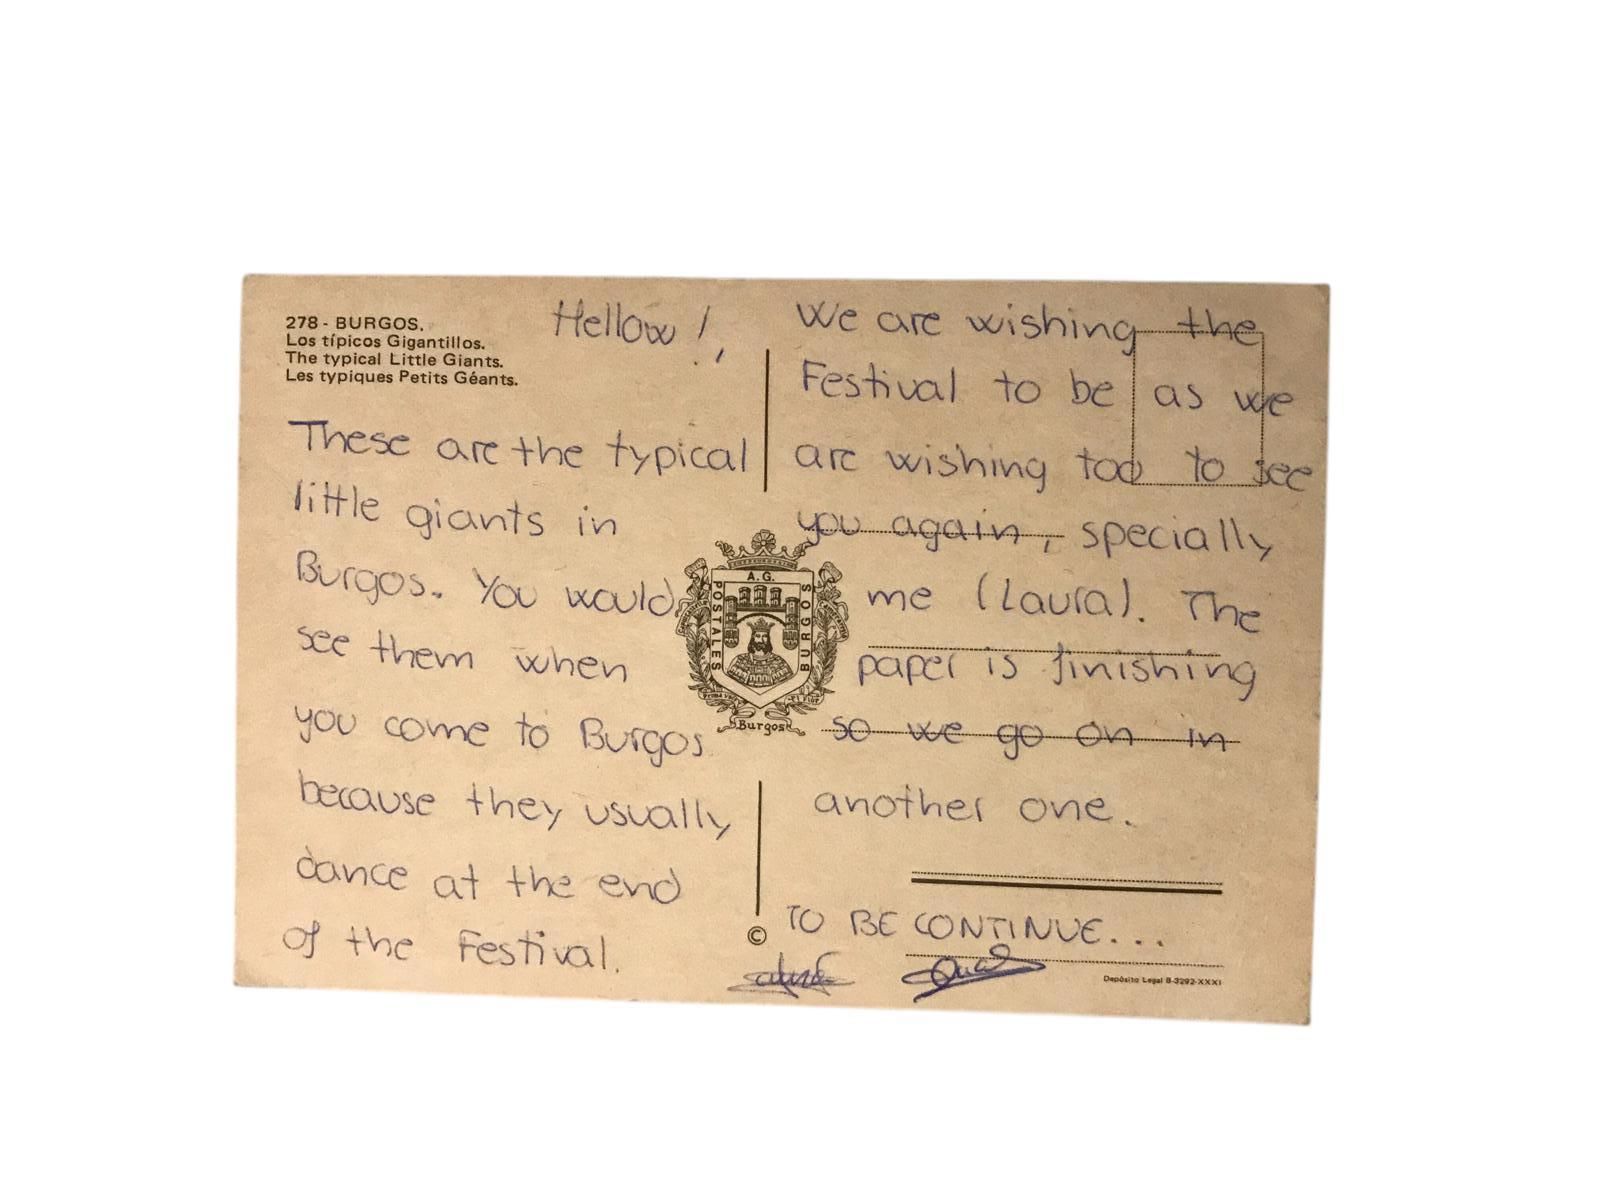 278 - BURGOS.
Los típicos Gigantillos.
The typical Little Giants.
Les typiques Petits Géants.
Hellow!,
These are the typical
little giants in
Burgos. You would
see them when
you come to Burgos
because they usually
dance at the end
of the Festival.
A.G.
POSTALES
BURGOS
Burgos
©
We are wishing the
Festival to be as we
are wishing too to see
you again, specially
me (Laura). The
paper is finishing
so we go on in
another one.
TO BE CONTINUE...
Depósito Legal B-3292-XXXI